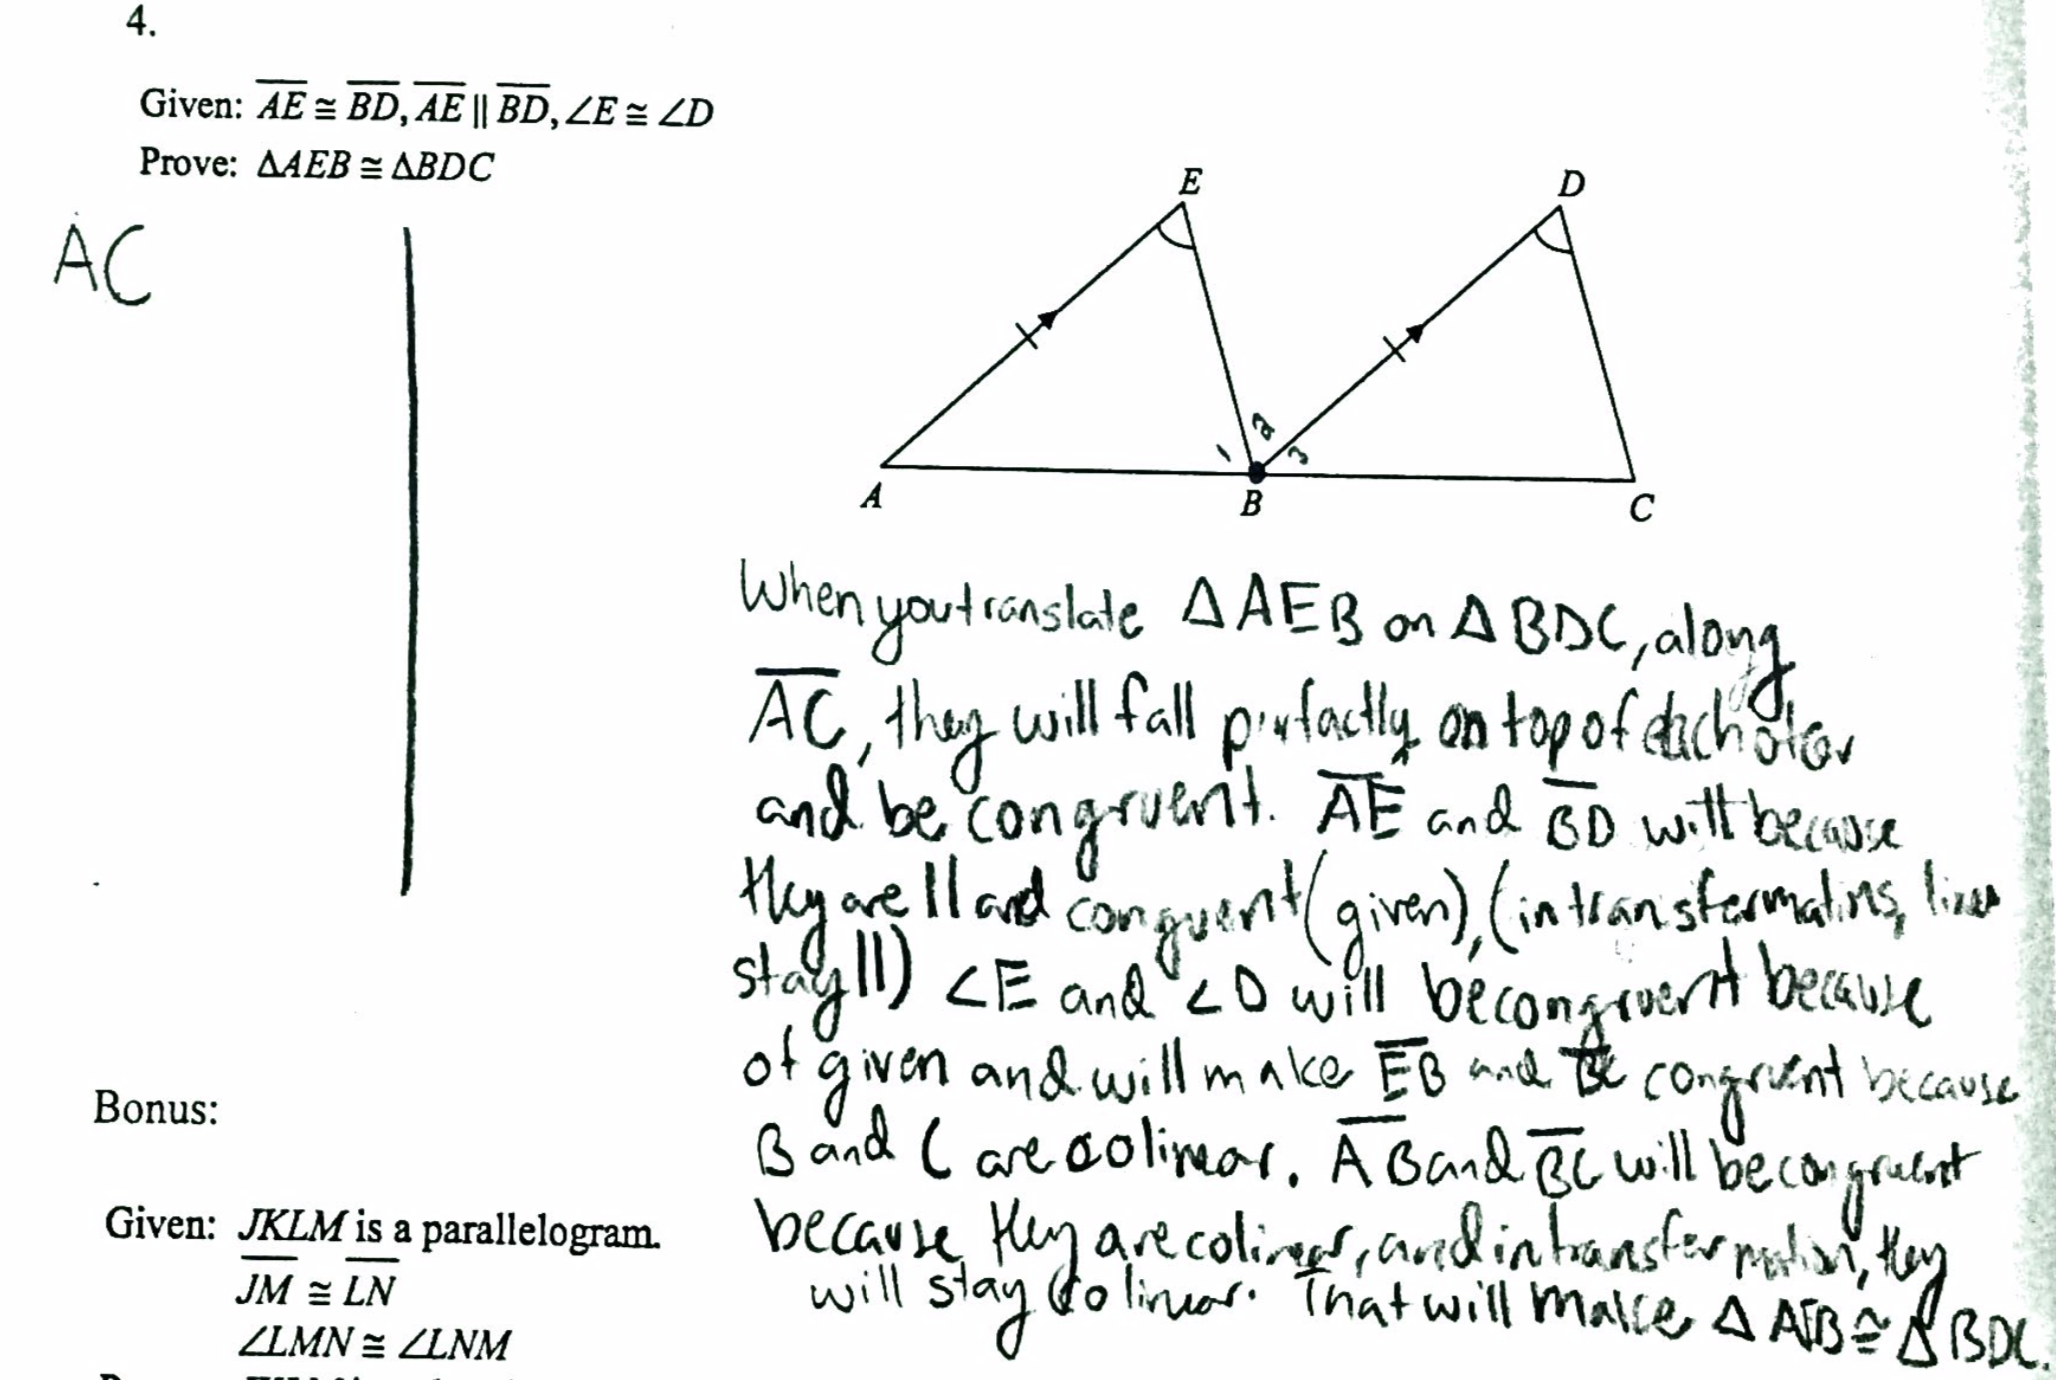 4.
Given: AE ≅ BD, AE || BD, ∠E ≅ ∠D
Prove: ΔAEB ≅ ΔBDC
AC
E
D
1 2 3
A
B
C
When you translate Δ AEB on Δ BDC, along
AC, they will fall perfactly on top of each other
and be congruent. AE and BD will because
they are || and conguent (given), (in transformatins, lines
stay ||) ∠E and ∠D will be congruent because
of given and will make EB and congruent because
B and C are colinear. AB and BC will be congruent
because they are colinear, and in transformation, they
will stay colinear. That will make Δ AEB ≅ Δ BDC.
Bonus:
Given: JKLM is a parallelogram.
JM ≅ LN
∠LMN ≅ ∠LNM